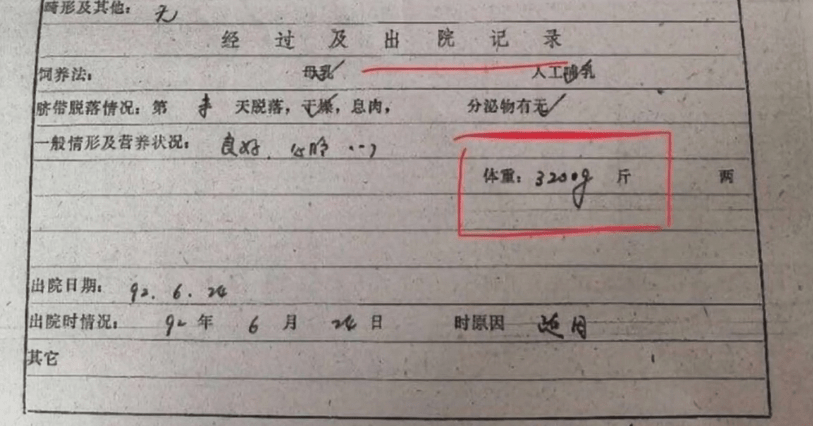 畸形及其他：无
经过及出院记录
饲养法： 母乳 人工哺乳
脐带脱落情况：第 未 天脱落，干燥，息肉， 分泌物有无
一般情形及营养状况： 良好
体重：3200g 斤 两
出院日期：92.6.24
出院时情况： 92年 6月 24日 时原因
其它